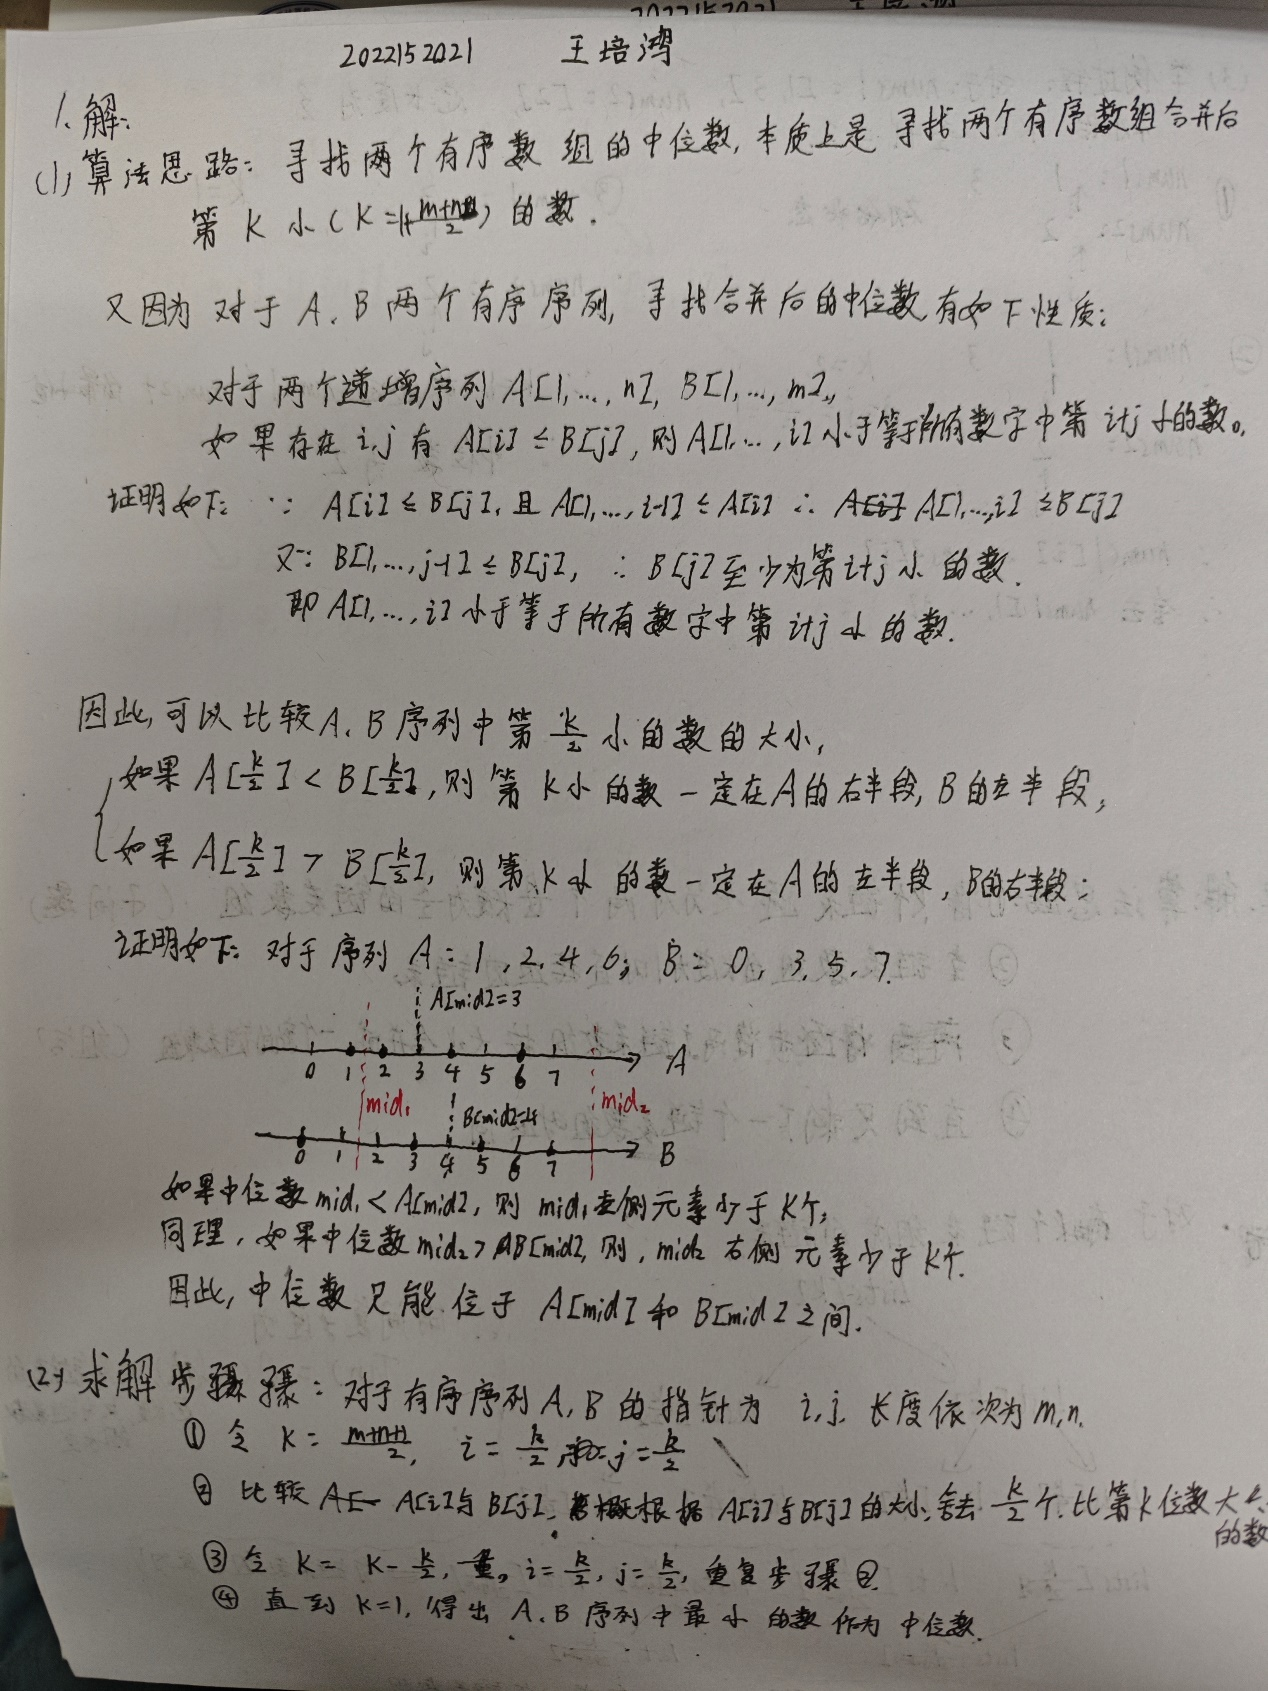 2022152021 王培鸿
1、解:
(1) 算法思路: 寻找两个有序数组的中位数, 本质上是寻找两个有序数组合并后
第 K 小 (K= ) 的数.
又因为对于 A、B 两个有序序列, 寻找合并后的中位数有如下性质:
对于两个递增序列 A[1,...,n], B[1,...,m],
如果存在 i,j 有 A[i] ≤ B[j], 则 A[1,...,i] 小于等于所有数字中第 i+j 小的数。
证明如下: ∵ A[i] ≤ B[j], 且 A[1,...,i-1] ≤ A[i] ∴ A[1,...,i] ≤ B[j]
又∵ B[1,...,j-1] ≤ B[j], ∴ B[j] 至少为第 i+j 小的数.
即 A[1,...,i] 小于等于所有数字中第 i+j 小的数.
因此, 可以比较 A、B 序列中第 k/2 小的数的大小,
如果 A[k/2] < B[k/2], 则第 K 小的数一定在 A 的右半段, B 的左半段;
如果 A[k/2] > B[k/2], 则第 K 小的数一定在 A 的左半段, B的右半段;
证明如下: 对于序列 A: 1, 2, 4, 6; B: 0, 3, 5, 7.
A[mid]=3
0 1 2 3 4 5 6 7 A
mid₁ B[mid]=4 mid₂
0 1 2 3 4 5 6 7 B
如果中位数 mid₁ < A[mid], 则 mid₁ 左侧元素少于 K个;
同理, 如果中位数 mid₂ > B[mid], 则, mid₂ 右侧元素少于 K个.
因此, 中位数只能位于 A[mid] 和 B[mid] 之间.
(2) 求解步骤: 对于有序序列 A, B 的指针为 i, j. 长度依次为 m, n.
① 令 K = (m+n+1)/2, i = k/2, j = k/2
② 比较 A[i] 与 B[j], 根据 A[i] 与 B[j] 的大小, 舍去 k/2 个, 比第 k 位数大/小
的数
③ 令 K = K - k/2, i = k/2, j = k/2, 重复步骤②.
④ 直到 K=1, 得出 A、B 序列中最小的数作为中位数.